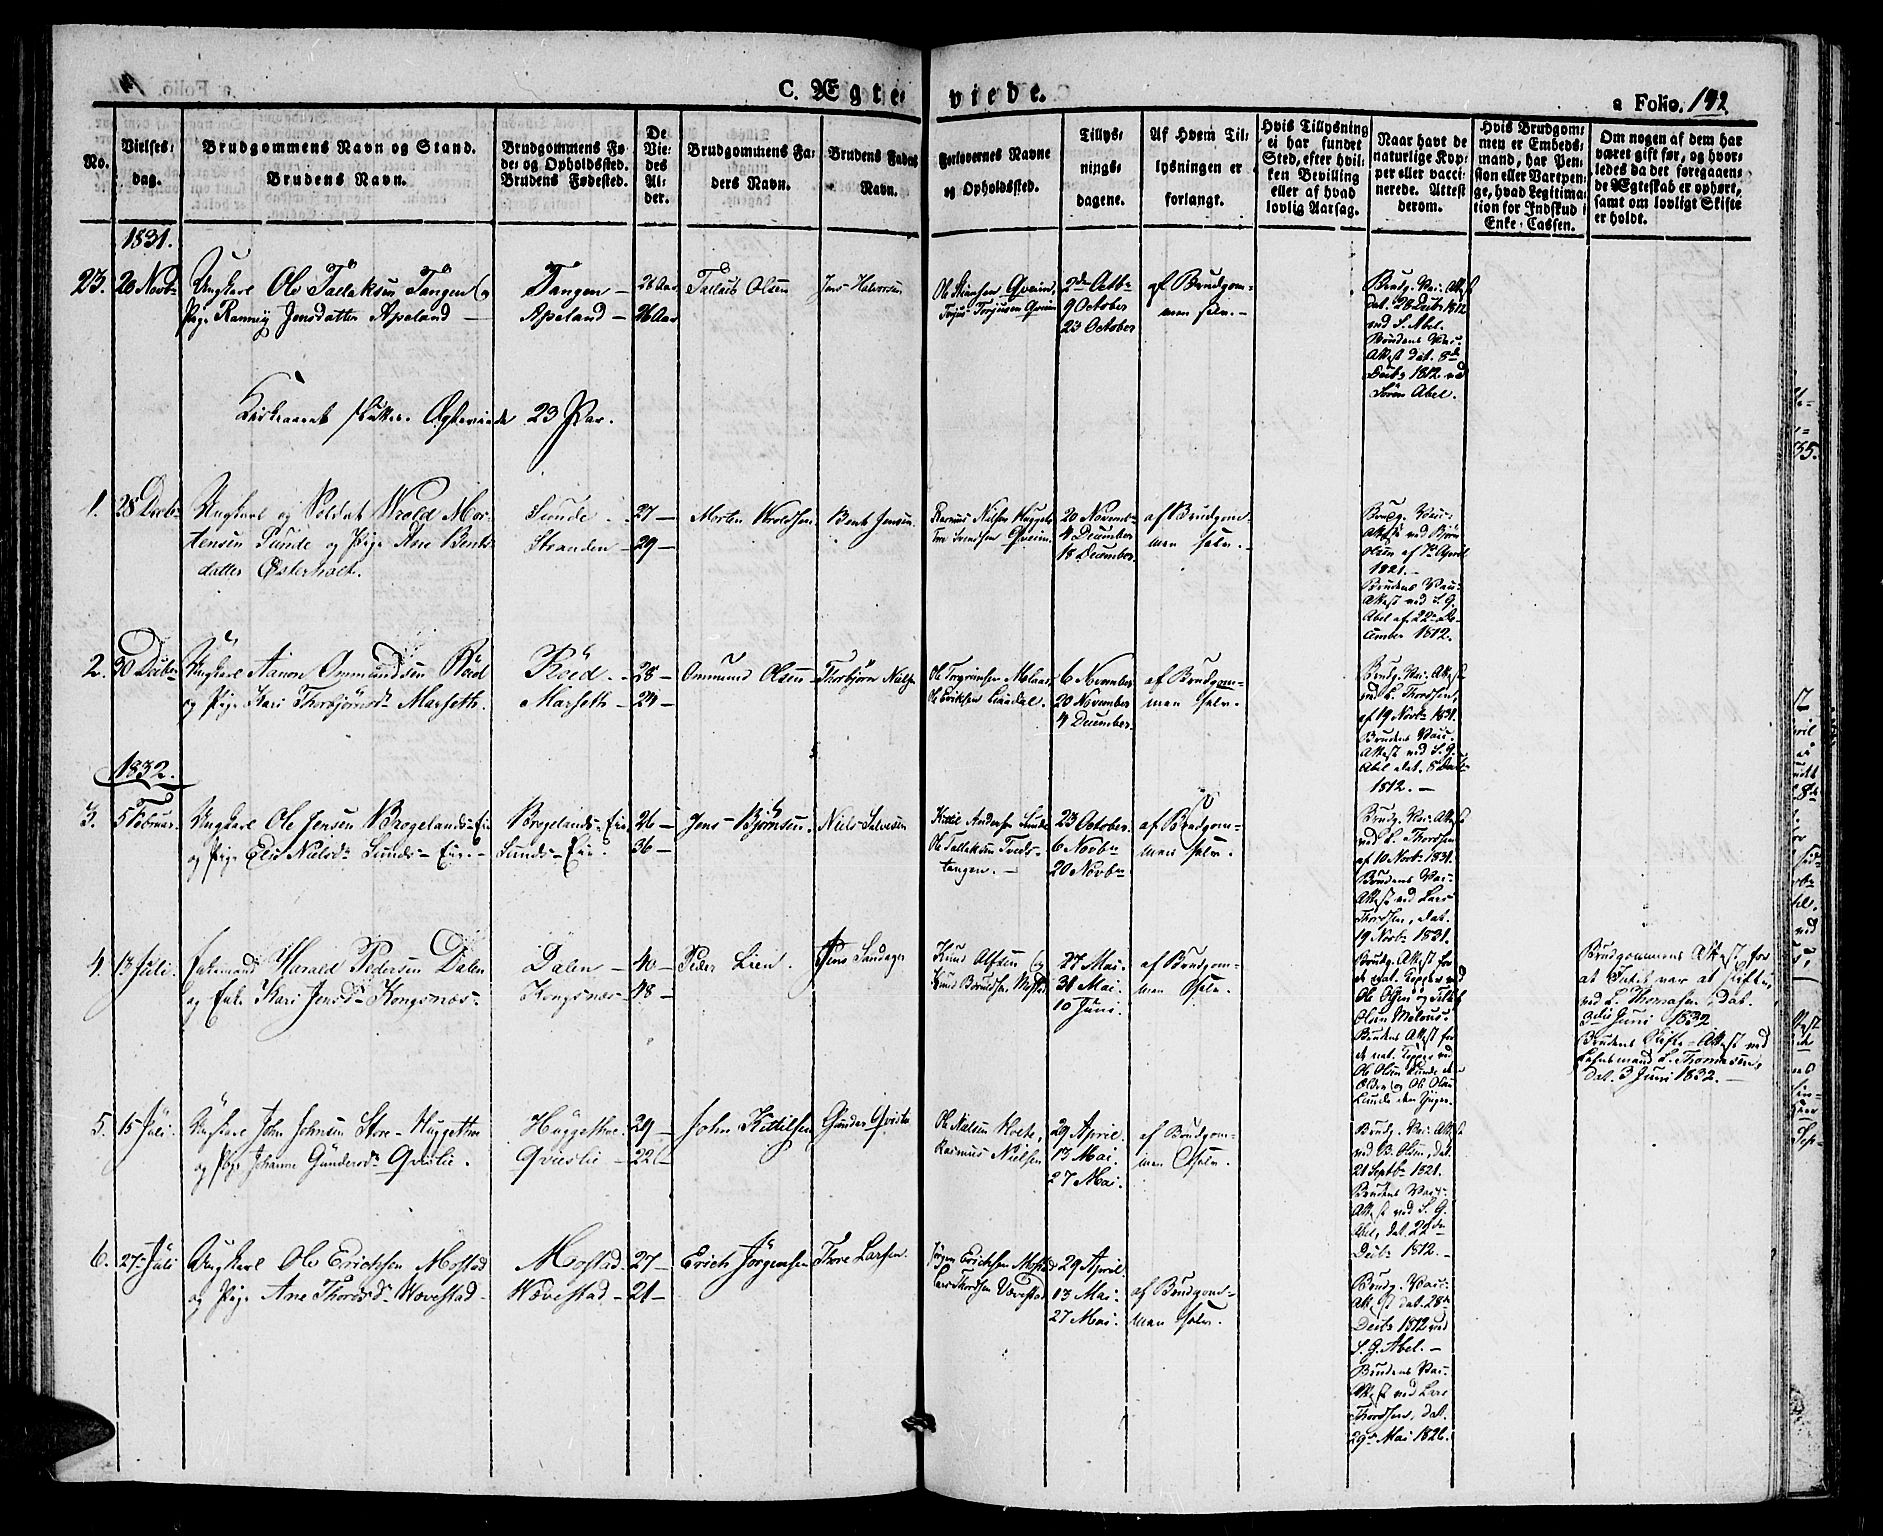 C. Ægte-
viede.
a Folio. 192
No.
Vielses-
dag.
Brudgommens Navn og Stand.
Brudens Navn.
Brudgommens Fø-
de- og Opholdssted.
Brudens Fødested.
De
Vie-
des
Al-
der.
Brudgommens Fa-
ders Navn.
Brudens Faders
Navn.
Forlovernes Navne
og Opholdssted.
Tillys-
nings-
dagene.
Af Hvem Til-
lysningen er
forlangt.
Hvis Tillysning
ei har fundet
Sted, efter hvil-
ken Bevilling
eller af hvad
lovlig Aarsag.
Naar havt de
naturlige Kop-
per eller vacci-
nerede. Attest
derom.
Hvis Brudgom-
men er Embeds-
mand, har Pen-
sion eller Vartpen-
ge, hvad Legitima-
tion for Indskud i
Enke-Cassen.
Om nogen af dem har
været gift før, og hvor-
ledes da det foregaaen-
de Ægteskab er ophørt,
samt om lovligt Skifte
er holdt.
1831.
23. 20 Novbr Ungkarl Ole Tallaksen Tangen og
Pige Ranney Jensdatter Apeland
Tangen
Apeland
28 Aar
26 Aar
Tallak Olsen
Jens Halvorsen
Ole Qveim,
Torjus Torjusen Qveim
2den Octbr
9 October
23 October
af Brudgom-
men selv.
Brudg. Vac. Attest
dat. 28 Decbr 1812
ved S. Abel.
Brudens Vac.
Attest dat. 8de
Decbr 1812 ved
Sören Abel.
Kirkeaaret Ægteviede 23 Par.
1. 28 Decbr Ungkarl og Soldat Wrold Mor-
tensen Sunde og Pige Ane Bents-
datter Østerholt.
Sunde
Stranden
27
29
Morten Wroldsen
Bent Jensen
Rasmus Nielsen
Qveim
20 November
4 December
18 December
af Brudgom-
men selv.
Brudg. Vac.
Attest ved Björn
Olsen af 7de April
1821.
Brudens Vac.
Attest ved S. G.
Abel af 22de De-
cember 1812.
2. 30 Decbr Ungkarl Aanon Ommundsen Röed
og Pige Kari Thorbjörnsd. Marseth.
Röed
Marseth
28
24
Ommund Olsen
Thorbjörn Nielsen
Ole
Ole Erichsen Lindal.
6 November
20 November
4 December
af Brudgom-
men selv.
Brudg. Vac. Attest
ved L. Thordsen,
af 19 Novbr 1831.
Brudens Vac.
Attest ved S. G.
Abel dat. 8 Decbr
1812.
1832.
3. 5 Februar. Ungkarl Ole Jensen Brogelands-Eie
og Pige Else Nielsd. Lunds-Eie.
Brogelands-Eie
Lunds-Eie.
26
36
Jens Björnsen.
Niels Salvesen
Kittil Andersen Lunde
Ole Tallaksen Tveds-
tangen.
23 October.
6 Novbr
20 Novbr
af Brudgom-
men selv.
Brudg. Vac. Attest
ved L. Thordsen
af 10 Novbr 1831.
Brudens Vac.
Attest ved Lars
Thordsen, dat.
19 Novbr 1831.
4. 13 Juli. Harald Pedersen Dalen
og Enke Kari Jensd. Kongsnæs.
Dalen
Kongsnæs
40
48
Peder Lien.
Jens Sandager
Knud Olsen og
Knud
27 Mai.
31 Mai.
10 Juni.
af Brudgom-
men selv.
Brudg. Attest for
de nat. Kopper ved
Ole Olsen og
Olsen
Brudens Attest for
de nat. Kopper ved
Ole Olsen Lunde den
Ældre og Ole Olsen
Lunde den Yngre.
Brudgommens Attest for
at Intet var at skifte
ved L. Thomasen, dat.
3die Juni 1832
Brudens Skifte-Attest ved
Lehnsmand L. Thomasen,
dat. 3 Juni 1832.
5. 15 Juli. Ungkarl John Johnsen Store-Huggethne
og Pige Johanne Gundersd. Qvislie.
Huggethne
Qvislie
29
22
John Kittilsen
Gunder Qvislie
Ole Nielsen
Rasmus Nielsen
29 April.
13 Mai.
27 Mai.
af Brudgom-
men selv.
Brudg. Vac. Attest
ved B. Olsen, dat.
21 Septbr 1821.
Brudens Vac.
Attest ved S. G.
Abel, dat. 22de
Decbr 1812.
6. 27 Juli Ungkarl Ole Erichsen Mostad
og Pige Ane Thoresd. Wævestad
Mostad
Wævestad
27
21
Erich Jörgensen
Thore Larsen.
Jörgen Erichsen Mostad
Lars Thordsen Vævestad
29 April.
13 Mai.
27 Mai.
af Brudgom-
men selv.
Brudg. Vac.
Attest dat. 28de
Decbr 1812 ved
S. G. Abel.
Brudens Vac.
Attest ved Lars
Thordsen, dat.
29de Mai 1826.